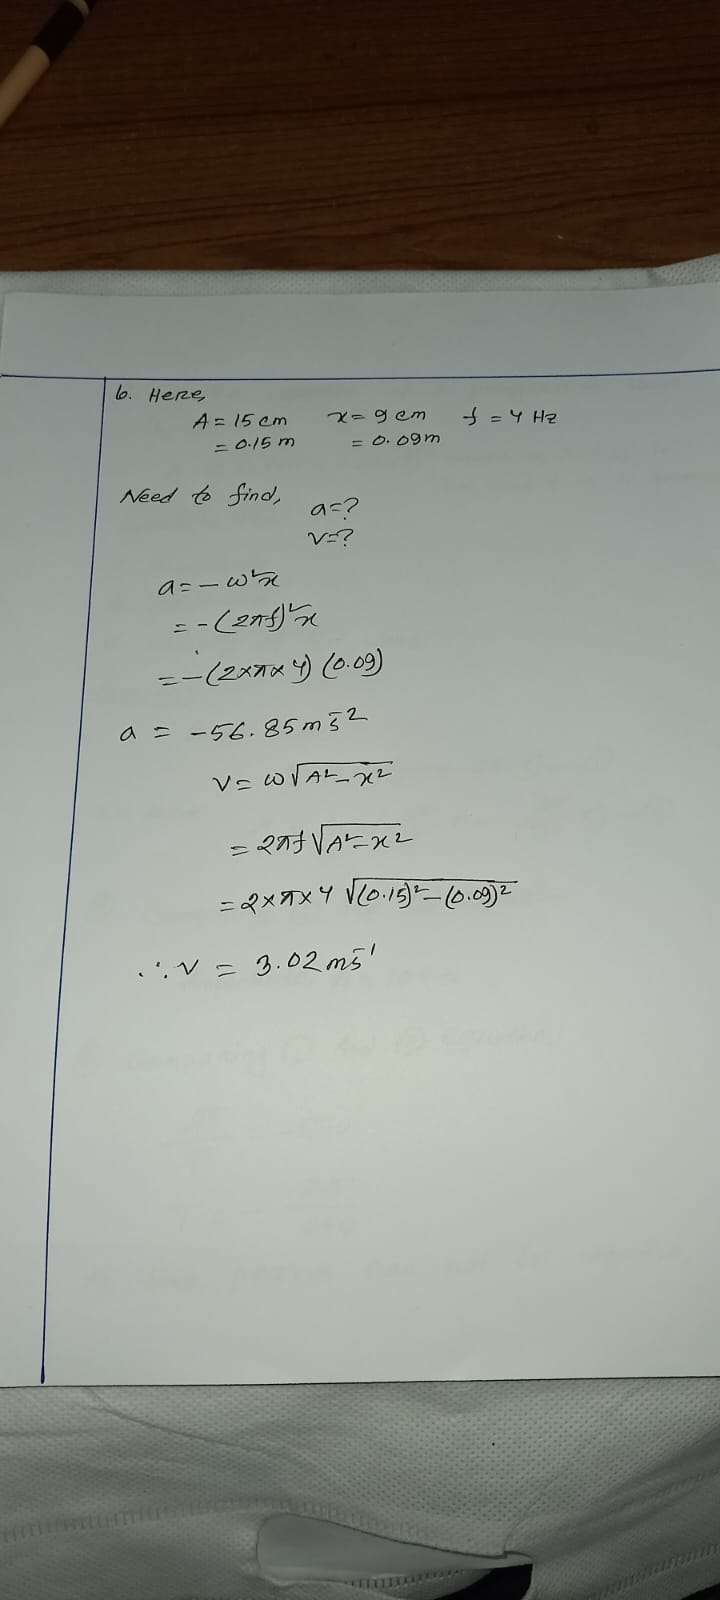 6. Here,
A = 15 cm x = 9 cm f = 4 Hz
= 0.15 m = 0.09m
Need to find,
a=?
v=?
a = - ω²x
= - (2πf)²x
= - (2×π×4) (0.09)
a = -56.85 ms⁻²
v = ω√(A²-x²)
= 2πf √(A²-x²)
= 2×π×4 √((0.15)²-(0.09)²)
∴ v = 3.02 ms⁻¹